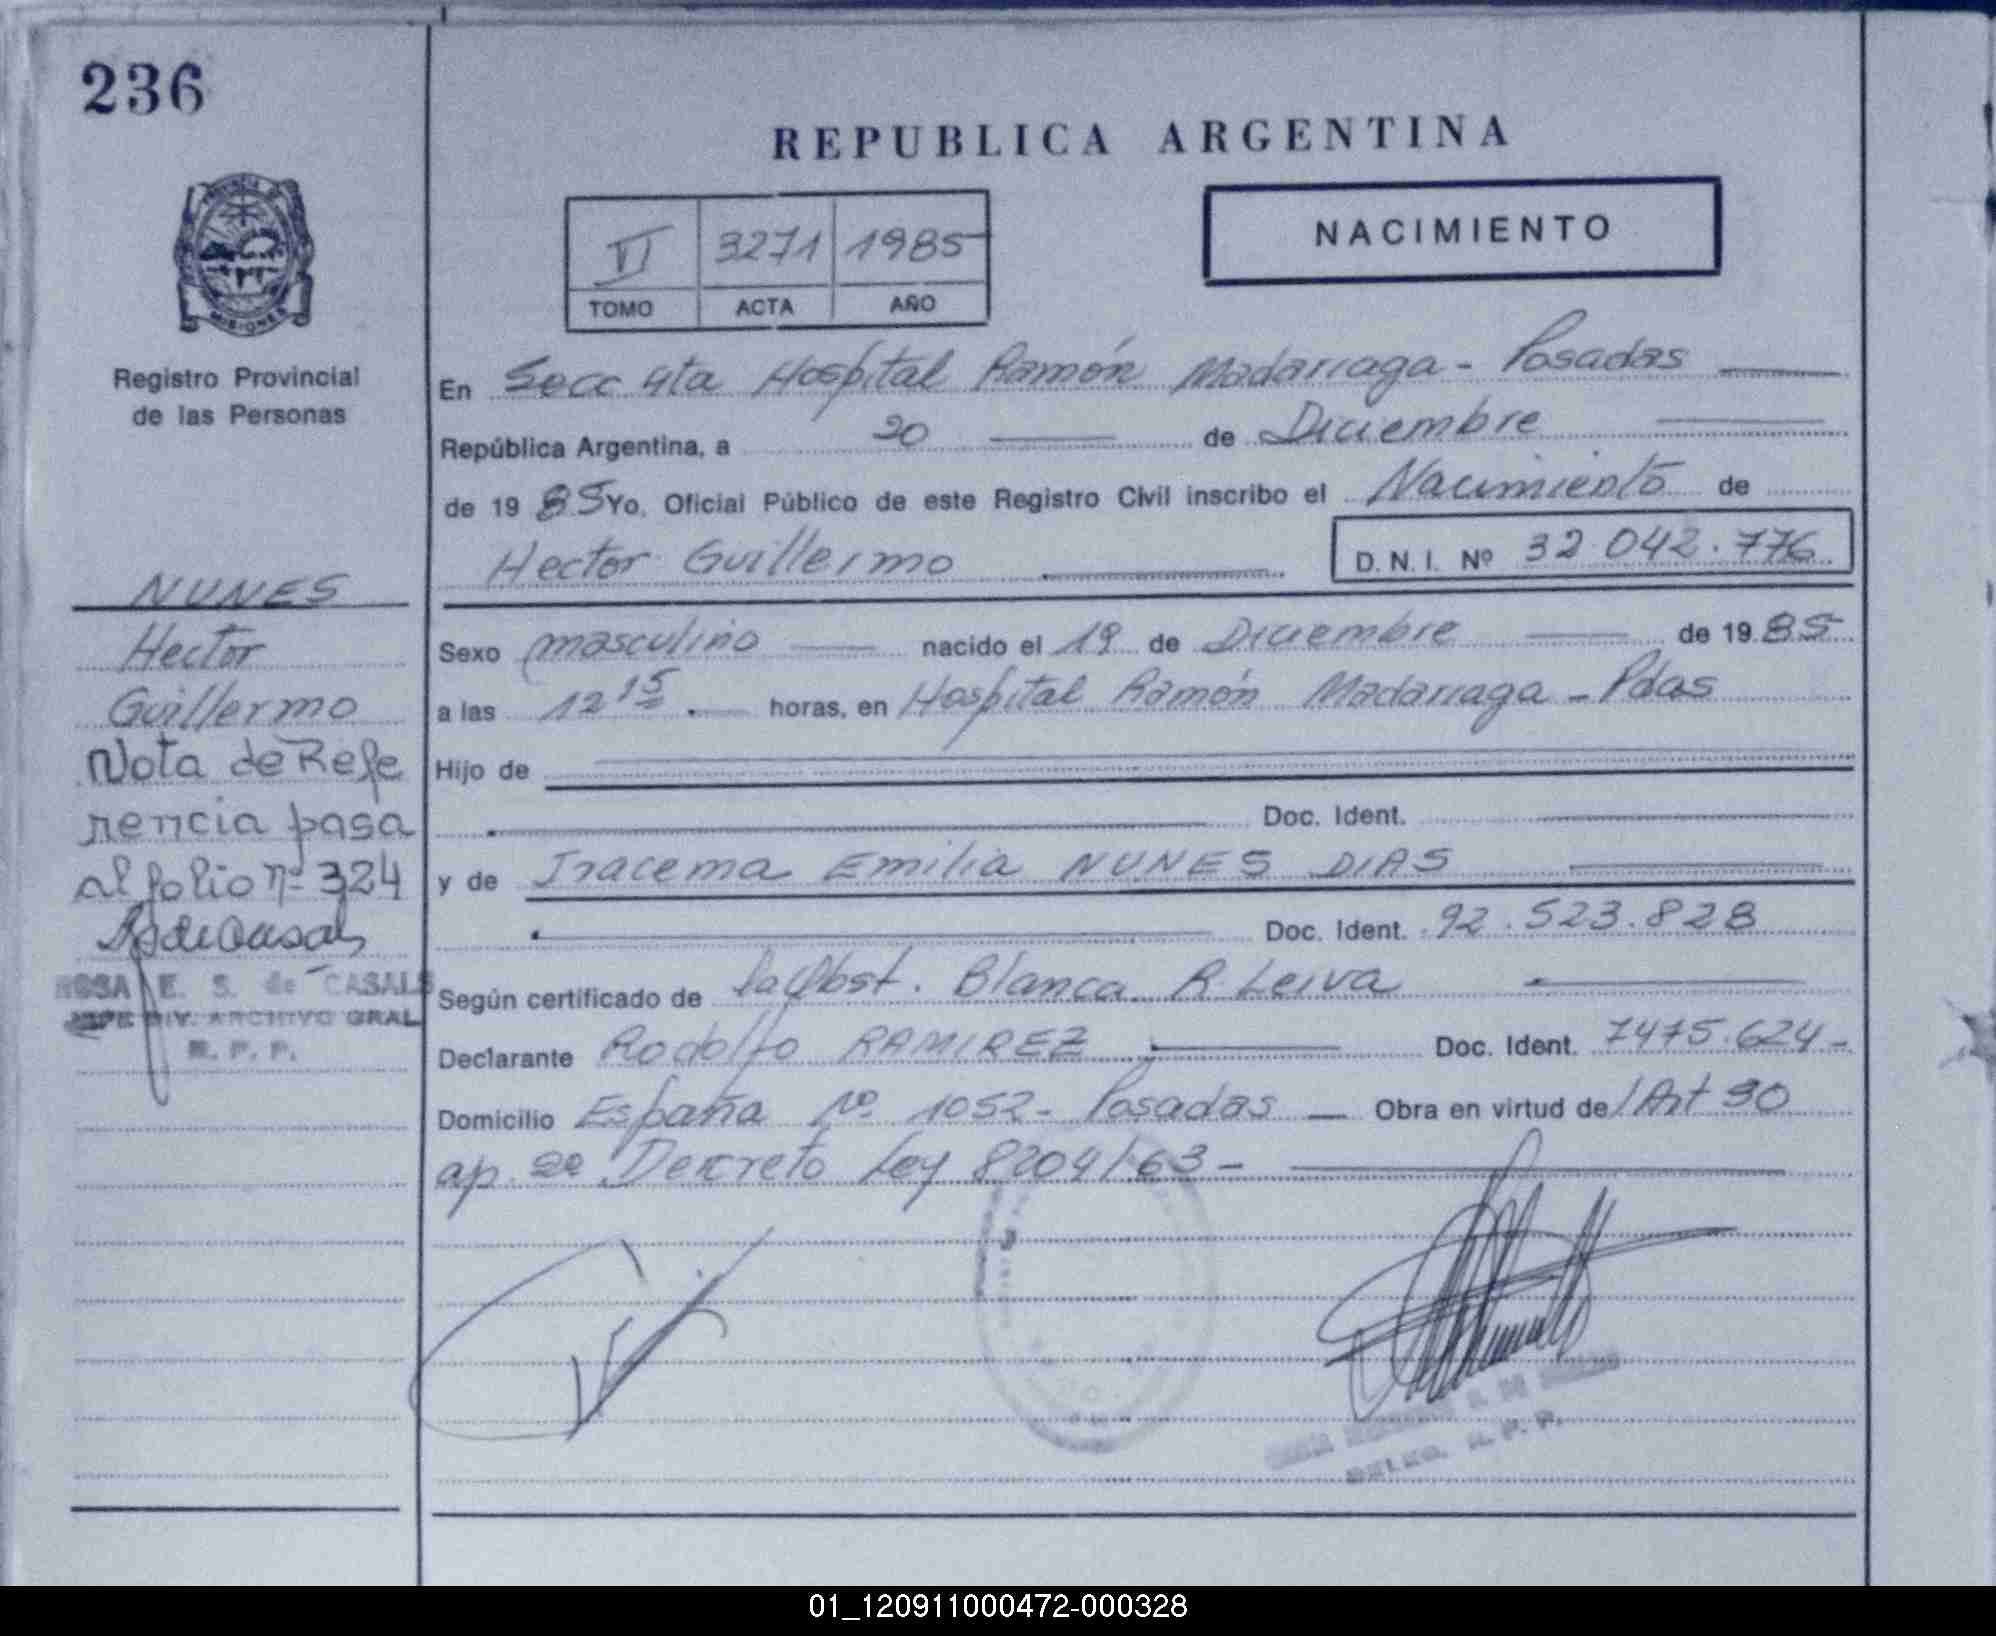 236
REPUBLICA ARGENTINA
VI 3271 1985
TOMO ACTA AÑO
NACIMIENTO
MISIONES
Registro Provincial
de las Personas
En Secc 4ta Hospital Ramón Madariaga - Posadas
República Argentina, a 20 de Diciembre
de 1985 Yo, Oficial Público de este Registro Civil inscribo el Nacimiento de
Hector Guillermo D.N.I. Nº 32.042.776
NUNES
Hector
Guillermo
Nota de Refe
rencia pasa
al folio nº 324
ROSA E. S. de CASALS
JEFE DIV. ARCHIVO GRAL
R. P. P.
Sexo masculino nacido el 19 de Diciembre de 1985
a las 12 15 horas, en Hospital Ramón Madariaga - Pdas
Hijo de
Doc. Ident.
y de Iracema Emilia NUNES DIAS
Doc. Ident. 92.523.828
Según certificado de la Obst. Blanca R. Leiva
Declarante Rodolfo RAMIREZ Doc. Ident. 7475.624-
Domicilio España Nº 1052- Posadas - Obra en virtud de/ Art 30
ap. 2º Decreto Ley 8204/63-
R. P. P.
01_120911000472-000328